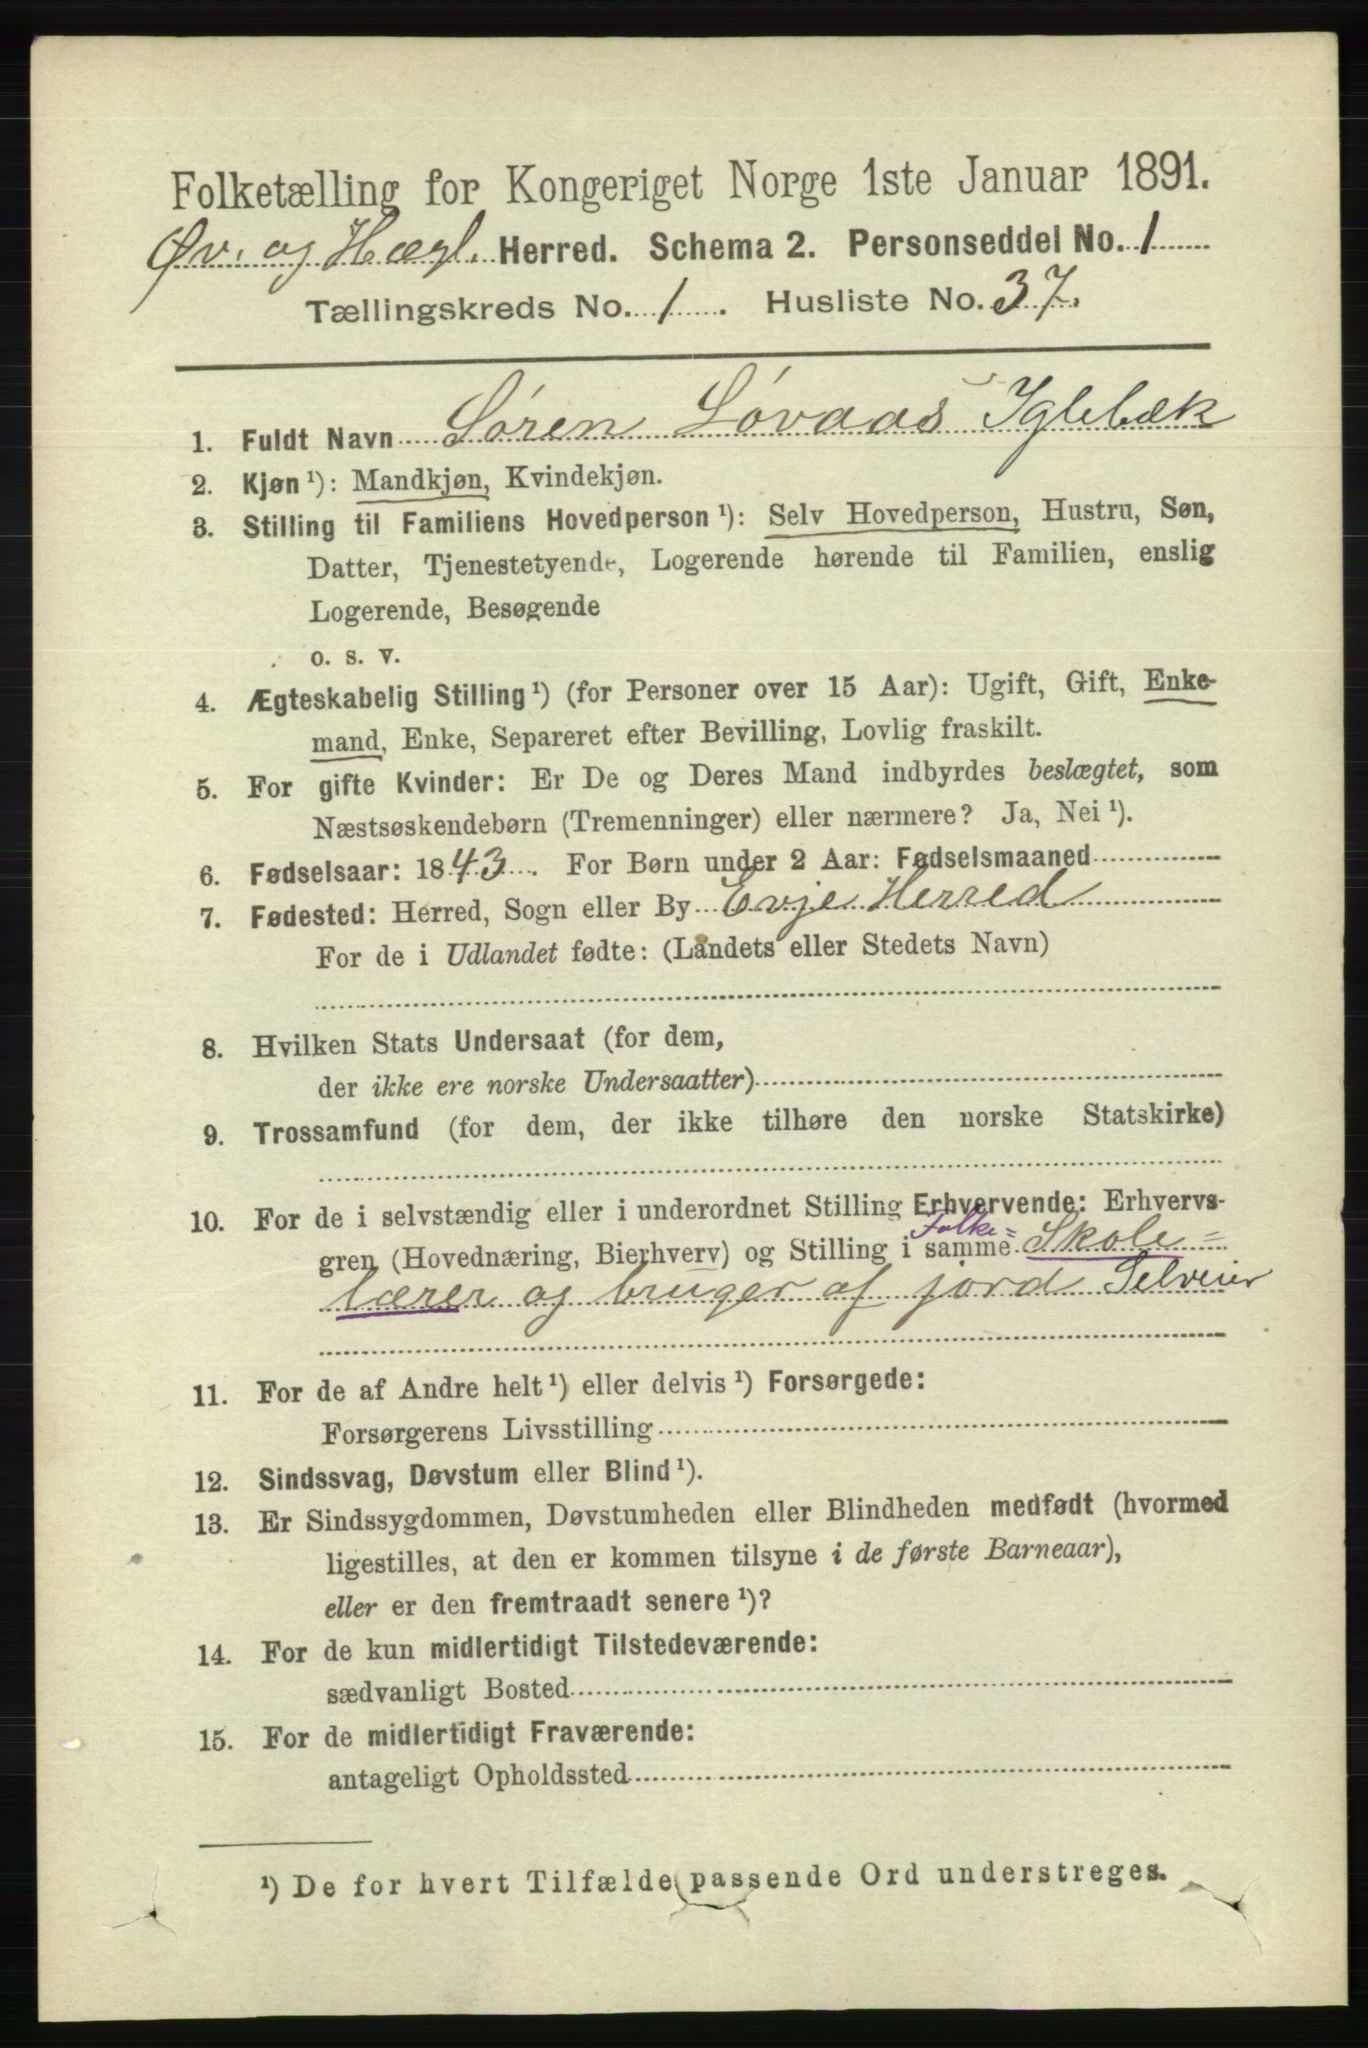 Folketælling for Kongeriget Norge 1ste Januar 1891.
Øv. og Hægl. Herred. Schema 2. Personseddel No. 1
Tællingskreds No. 1. Husliste No. 37.
1. Fuldt Navn Søren Løvaas Iglebæk
2. Kjøn¹): Mandkjøn, Kvindekjøn.
3. Stilling til Familiens Hovedperson¹): Selv Hovedperson, Hustru, Søn,
Datter, Tjenestetyende, Logerende hørende til Familien, enslig
Logerende, Besøgende
o. s. v.
4. Ægteskabelig Stilling¹) (for Personer over 15 Aar): Ugift, Gift, Enke-
mand, Enke, Separeret efter Bevilling, Lovlig fraskilt.
5. For gifte Kvinder: Er De og Deres Mand indbyrdes beslægtet, som
Næstsøskendebørn (Tremenninger) eller nærmere? Ja, Nei¹).
6. Fødselsaar: 1843. For Børn under 2 Aar: Fødselsmaaned
7. Fødested: Herred, Sogn eller By Evje Herred
For de i Udlandet fødte: (Landets eller Stedets Navn)
8. Hvilken Stats Undersaat (for dem,
der ikke ere norske Undersaatter)
9. Trossamfund (for dem, der ikke tilhøre den norske Statskirke)
10. For de i selvstændig eller i underordnet Stilling Erhvervende: Erhvervs-
Folke=
gren (Hovednæring, Bierhverv) og Stilling i samme Skole=
lærer og bruger af jord Selveier
11. For de af Andre helt¹) eller delvis¹) Forsørgede:
Forsørgerens Livsstilling
12. Sindssvag, Døvstum eller Blind¹).
13. Er Sindssygdommen, Døvstumheden eller Blindheden medfødt (hvormed
ligestilles, at den er kommen tilsyne i de første Barneaar),
eller er den fremtraadt senere¹)?
14. For de kun midlertidigt Tilstedeværende:
sædvanligt Bosted
15. For de midlertidigt Fraværende:
antageligt Opholdssted
¹) De for hvert Tilfælde passende Ord understreges.